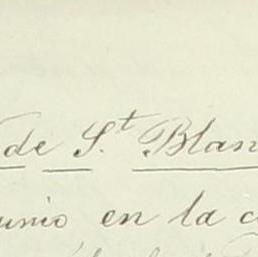 de S.t Blan
unio en la c